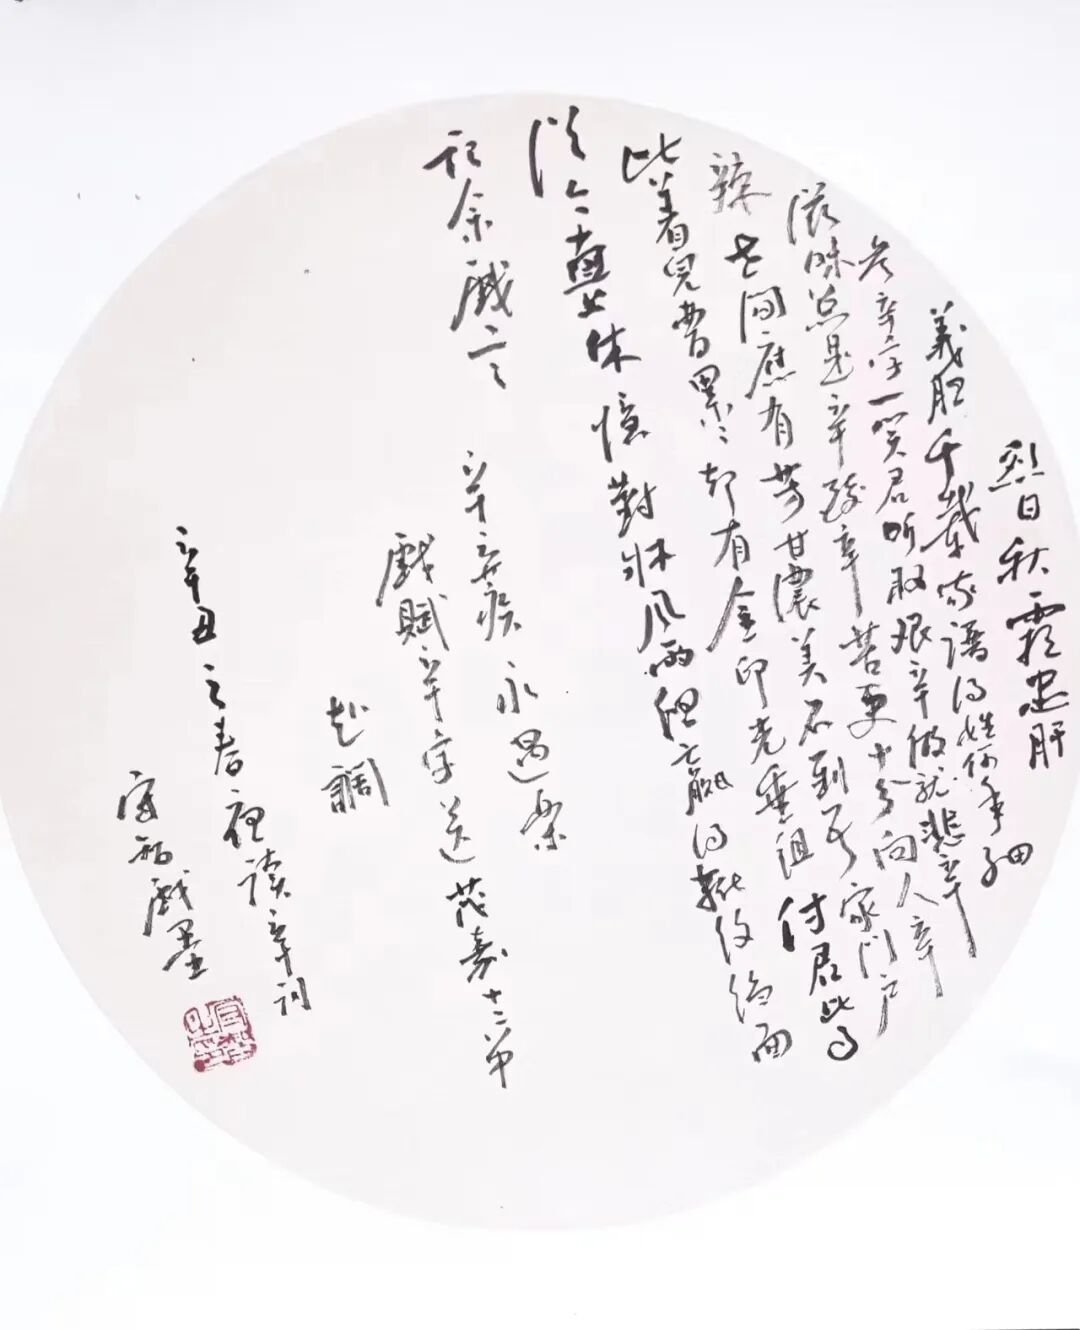 烈日秋霜忠肝
義胆千載家譜得姓何年細
参辛字一笑君听取艰辛做就悲辛
滋味总是辛酸辛苦更十分向人辛
辣世间應有芳甘濃美不到吾家门户
比着兒曹累々却有金印光垂组付君此事
從今直上休憶對牀风雨但赢得靴纹绉面
记余戲言 辛弃疾永遇樂
戲賦辛字送茂嘉十二弟
赴調
辛丑之春夜读辛词
戲墨